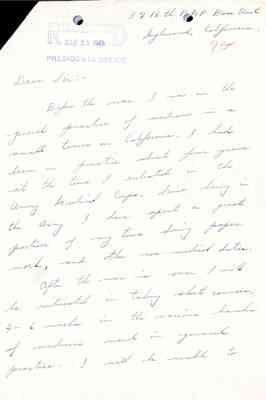 R
PRESIDENT'S OFFICE
Inglewood, California
Dear Sir:-
Before the war I was in the
general practice of medicine in a
small town in California. I had
been in practice about four years
at the time I enlisted in the
Army Medical Corps. Since being in
the Army I have spent a great
portion of my time doing paper
work, and other non medical duties.
After the war is over I will
be interested in taking short courses,
4-6 weeks in the various branches
of medicine used in general
practice. I will be unable to